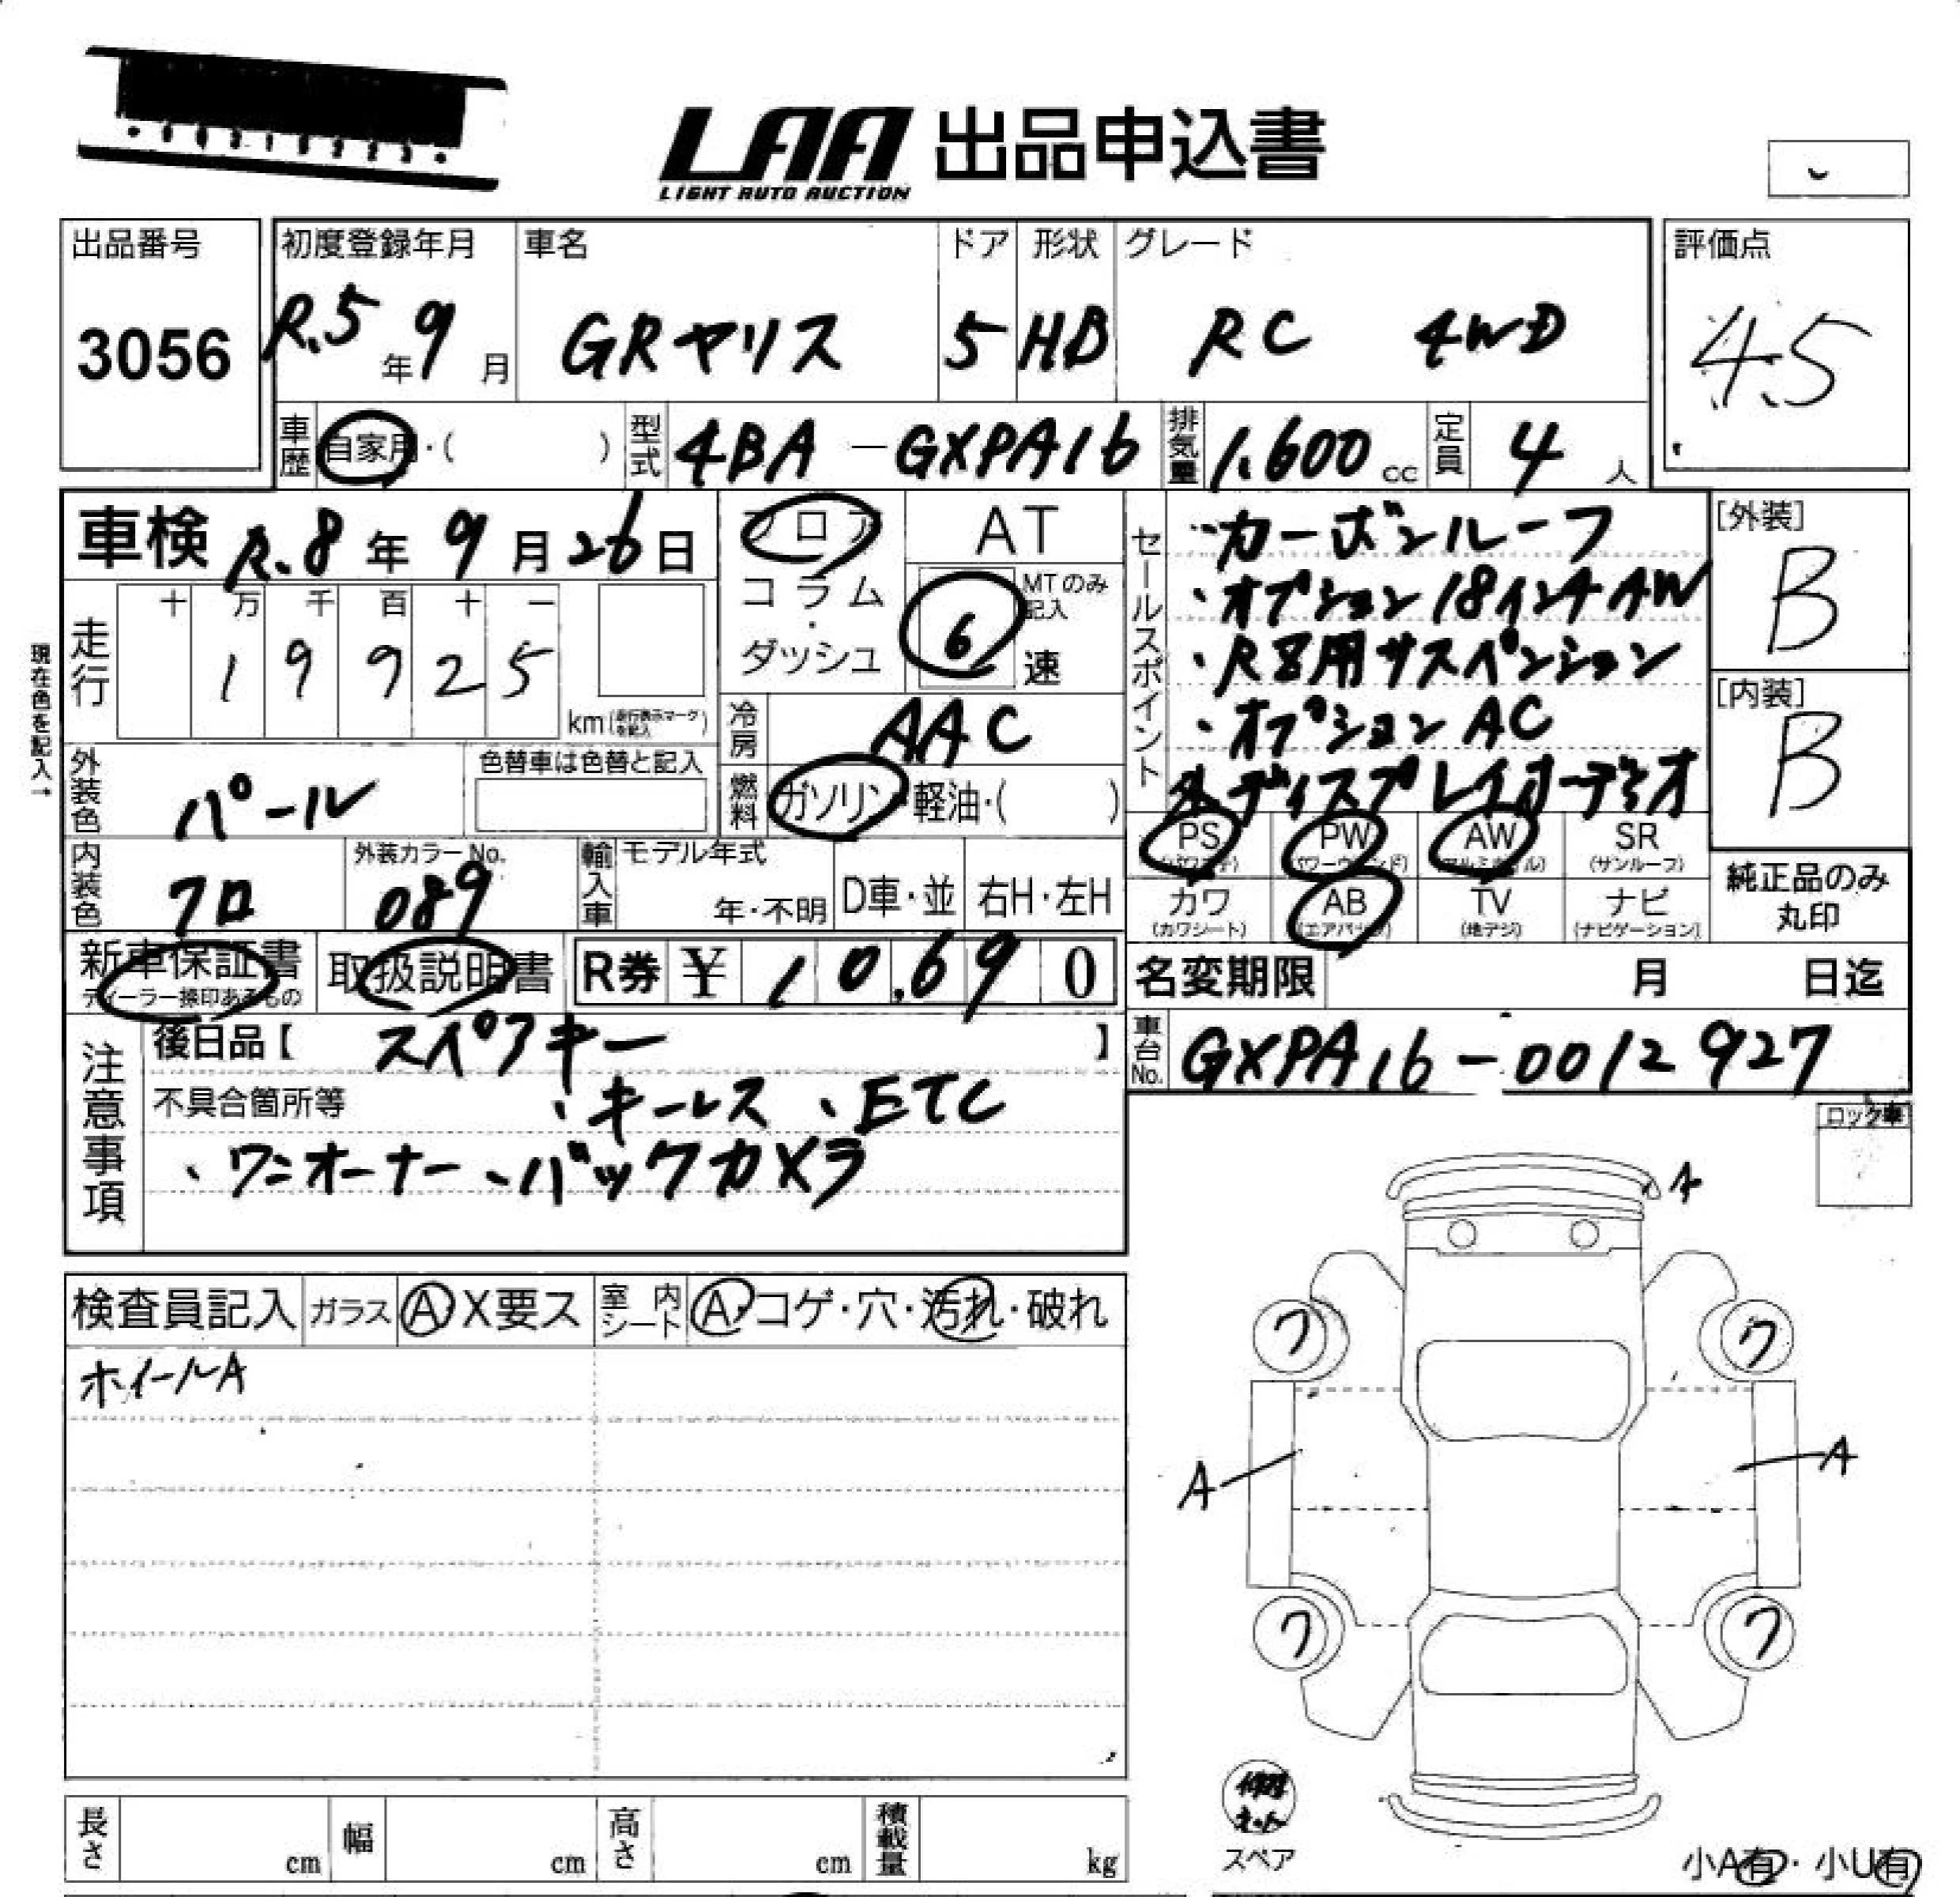 LAA 出品申込書
LIGHT AUTO AUCTION
出品番号
3056
初度登録年月
R.5年9月
車名
GRヤリス
ドア
5
形状
HB
グレード
RC 4WD
評価点
4.5
車歴 自家用・( )
型式 4BA-GXPA16
排気量 1.600cc
定員 4人
車検 R.8年9月26日
現在色を記入→
走行
十 万 千 百 十 一
1 9 9 2 5
km(走行表示マークを記入)
フロア
コラム
・
ダッシュ
AT
MTのみ記入
6速
冷房 AAC
燃料 ガソリン・軽油・( )
外装色 パール
色替車は色替と記入
内装色 クロ
外装カラーNo.
089
輸入車
モデル年式
年・不明
D車・並
右H・左H
セールスポイント
・カーボンルーフ
・オプション18インチAW
・RZ用サスペンション
・オプションAC
ディスプレイオーディオ
PS
(パワステ)
PW
(パワーウインド)
AW
(アルミホイル)
SR
(サンルーフ)
カワ
(カワシート)
AB
(エアバッグ)
TV
(地デジ)
ナビ
(ナビゲーション)
[外装]
B
[内装]
B
純正品のみ
丸印
新車保証書
ディーラー捺印あるもの
取扱説明書
R券 ¥ 10,690
名変期限 月 日迄
車台No. GXPA16-0012927
注意事項
後日品【 スペアキー 】
不具合箇所等 、キーレス 、ETC
、ワンオーナー 、バックカメラ
ロック車
検査員記入 ガラス A X要ス
室内シート A・コゲ・穴・汚れ・破れ
ホイールA
A
ワ ワ
A A
ワ ワ
スペア
小A有・小U有
長さ cm
幅 cm
高さ cm
積載量 kg